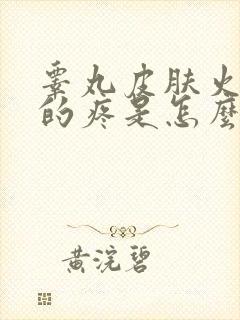 睾丸皮肤火
的疼是怎麼
黄浣碧